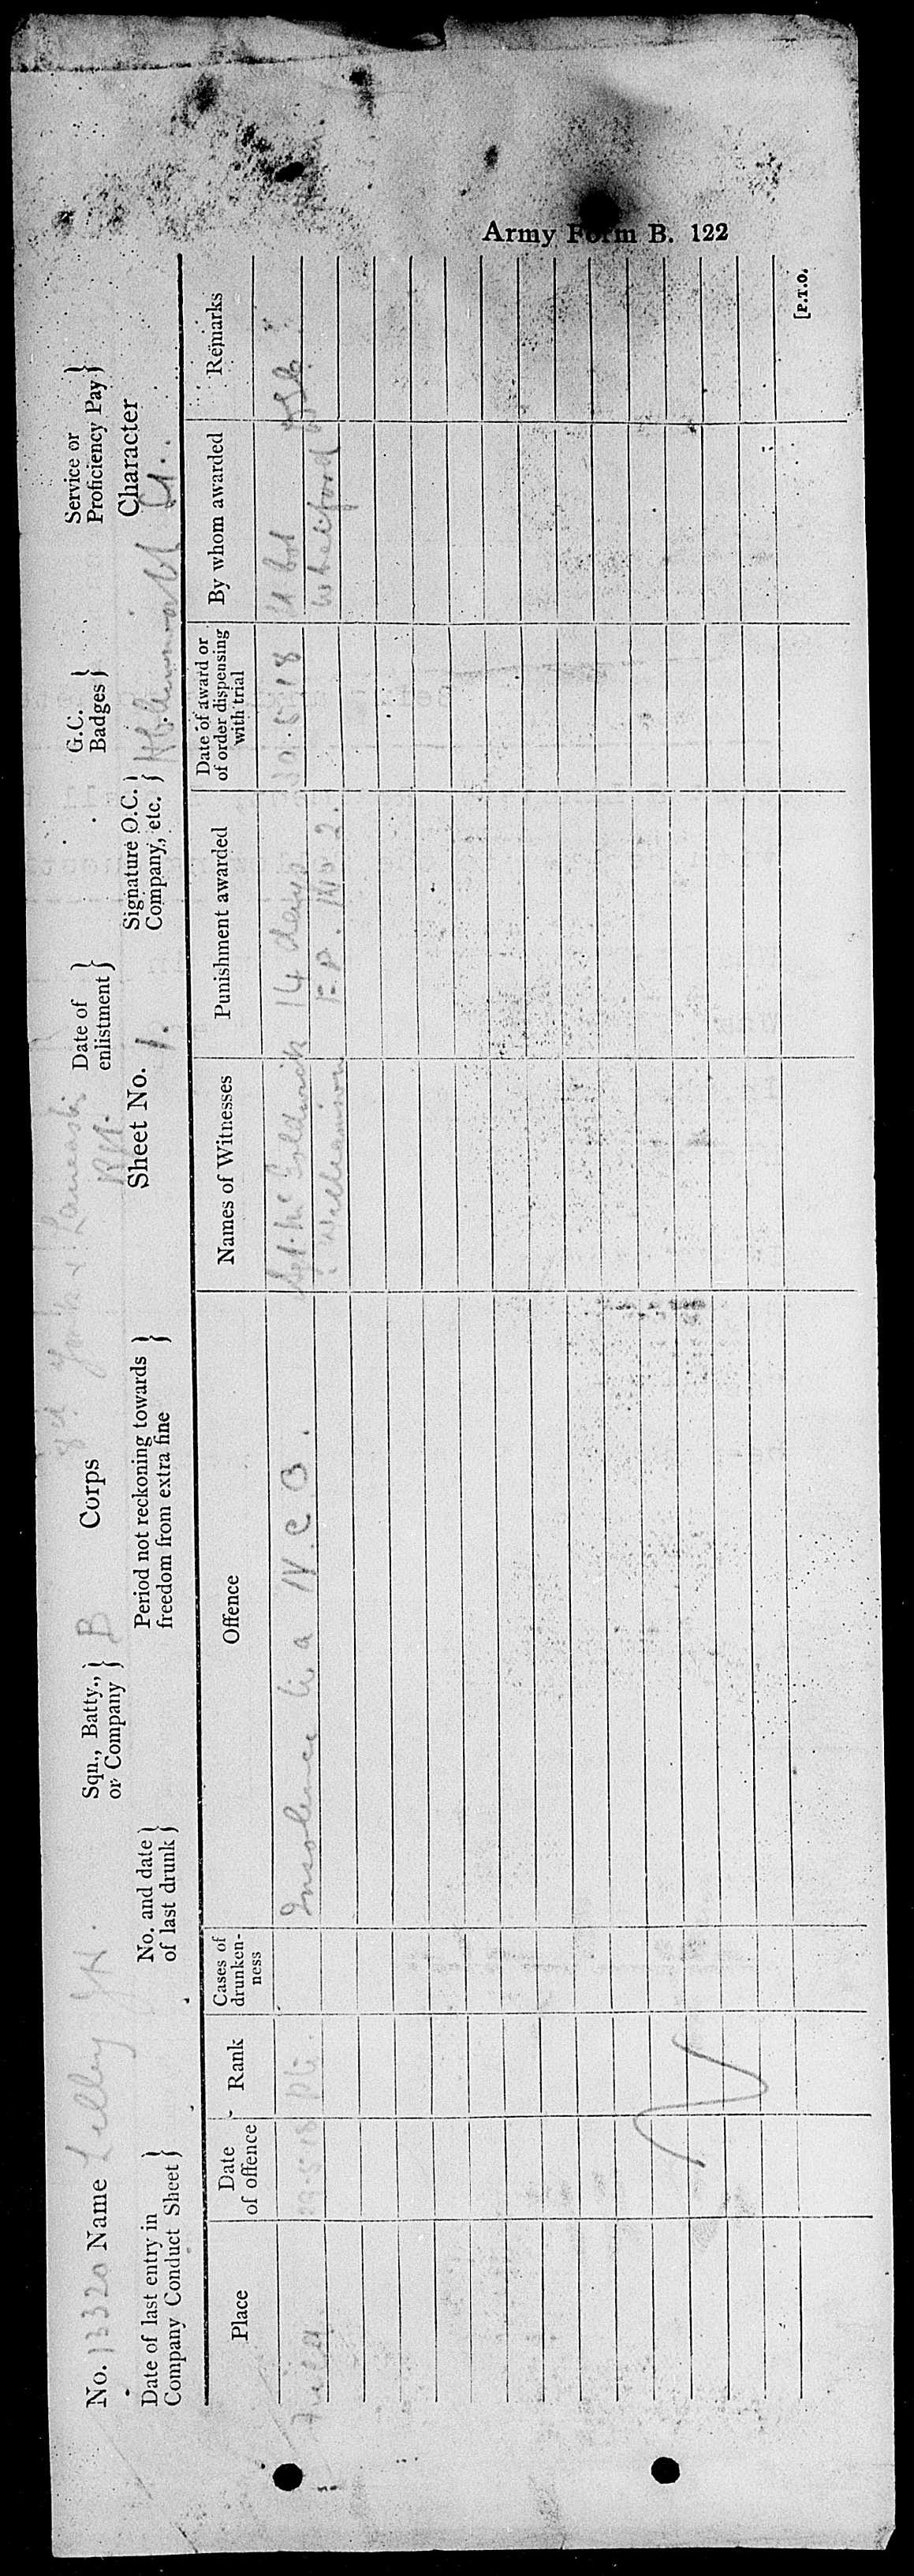 Army Form B. 122
No. 13320 Name Lilley J.H. Sqn., Batty., or Company } B Corps York & Lancaster Date of enlistment } G.C. Badges } Service or Proficiency Pay }
Date of last entry in Company Conduct Sheet } No. and date of last drunk } Period not reckoning towards freedom from extra fine } Sheet No. 1. Signature O.C. Company, etc. } Character
Place Date of offence Rank Cases of drunken-ness Offence Names of Witnesses Punishment awarded Date of award or of order dispensing with trial By whom awarded Remarks
Field 29-5-18 Pte. Insolence to a N.C.O. Sgt. Mc Goldrick 14 days 30.5.18
" Williamson F.P. No 2. Whelpord
[P.T.O.